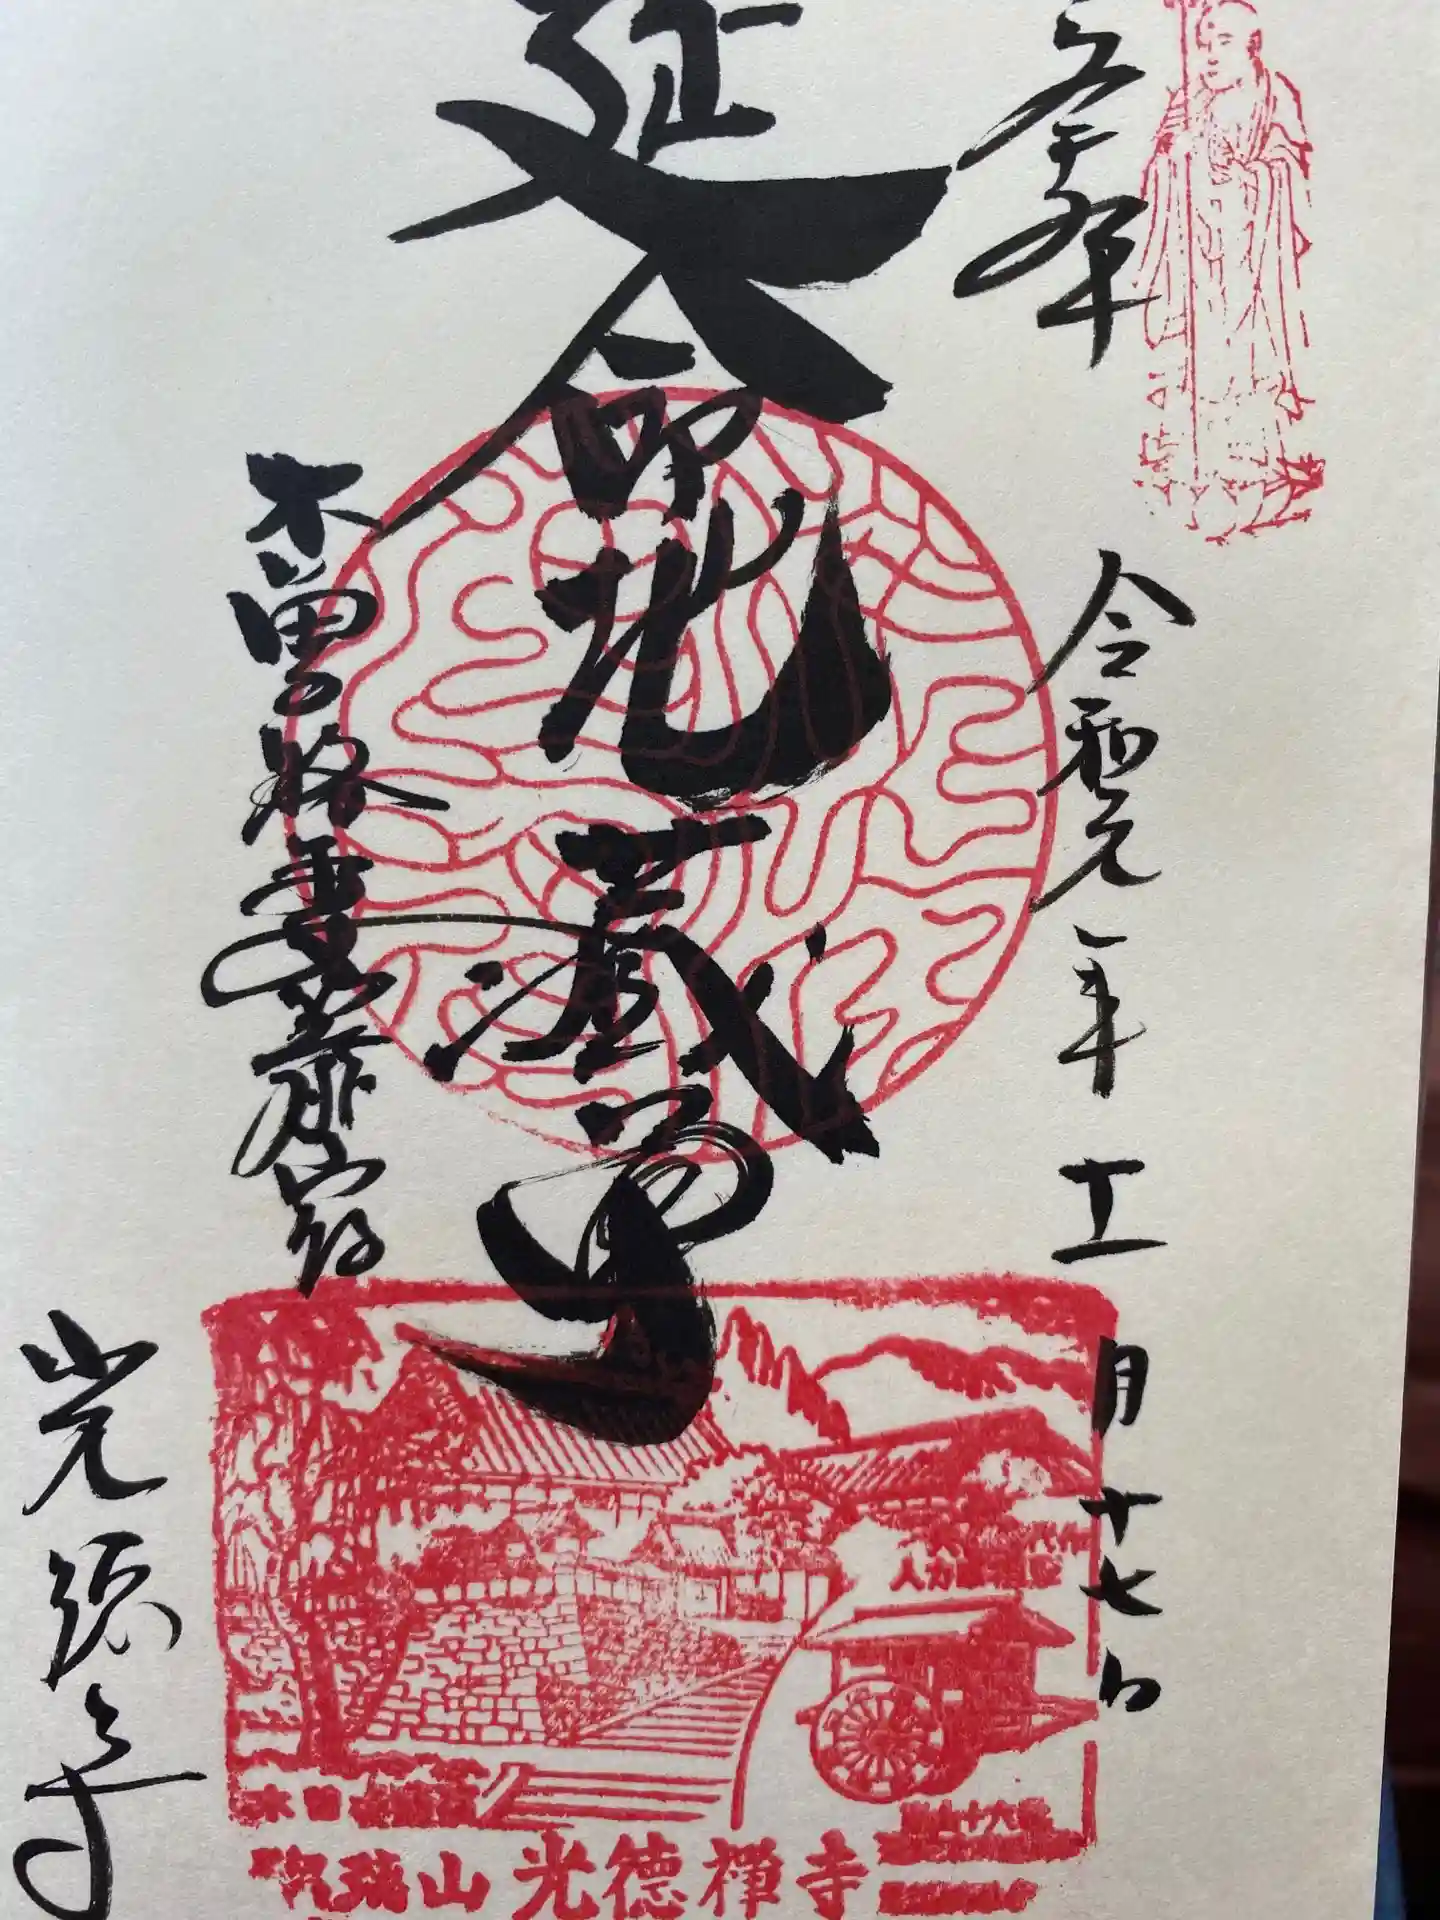 奉
令和元年十一月十七日
延命地蔵尊
木曽路妻籠宿
光徳寺
木曽
人力
瑞山 光德禅寺